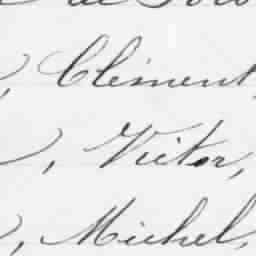 , Clément,
, Victor,
, Michel,